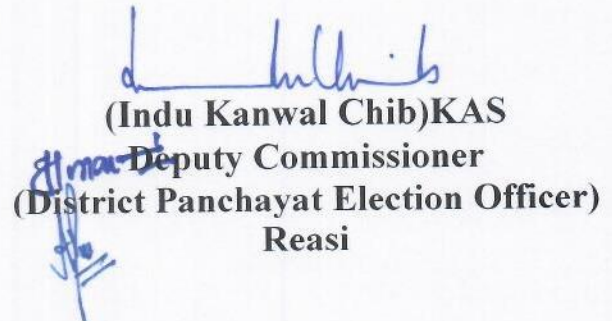 (Indu Kanwal Chib)KAS
Deputy Commissioner
(District Panchayat Election Officer)
Reasi